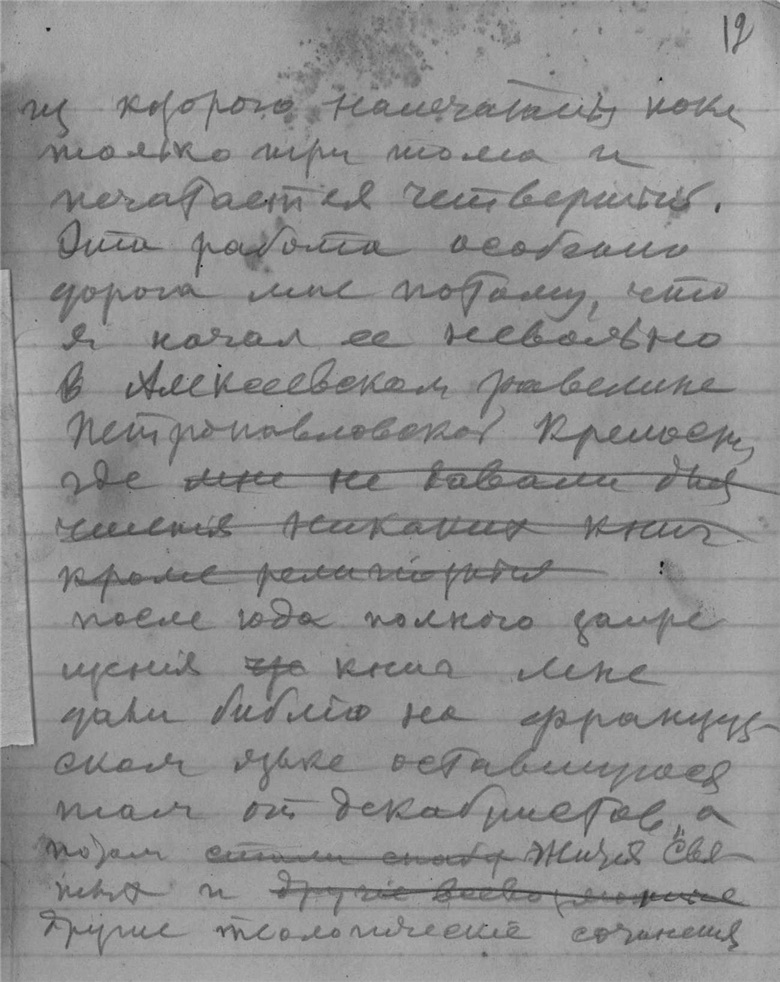 12
из которого напечатаны пока
только три тома и
печатается четвертый.
Эта работа особенно
дорога мне потому, что
я начал ее невольно
в Алексеевском равелине
Петропавловской Крепости,
где мне не давали для
чтения никаких книг
кроме религиозных
после года полного запре
щения книг мне
дали библію на француз-
ском языке оставшуюся
там от декабристов, а
потом стали снабж Жития Свя-
тых и другие
другие теологические сочинения